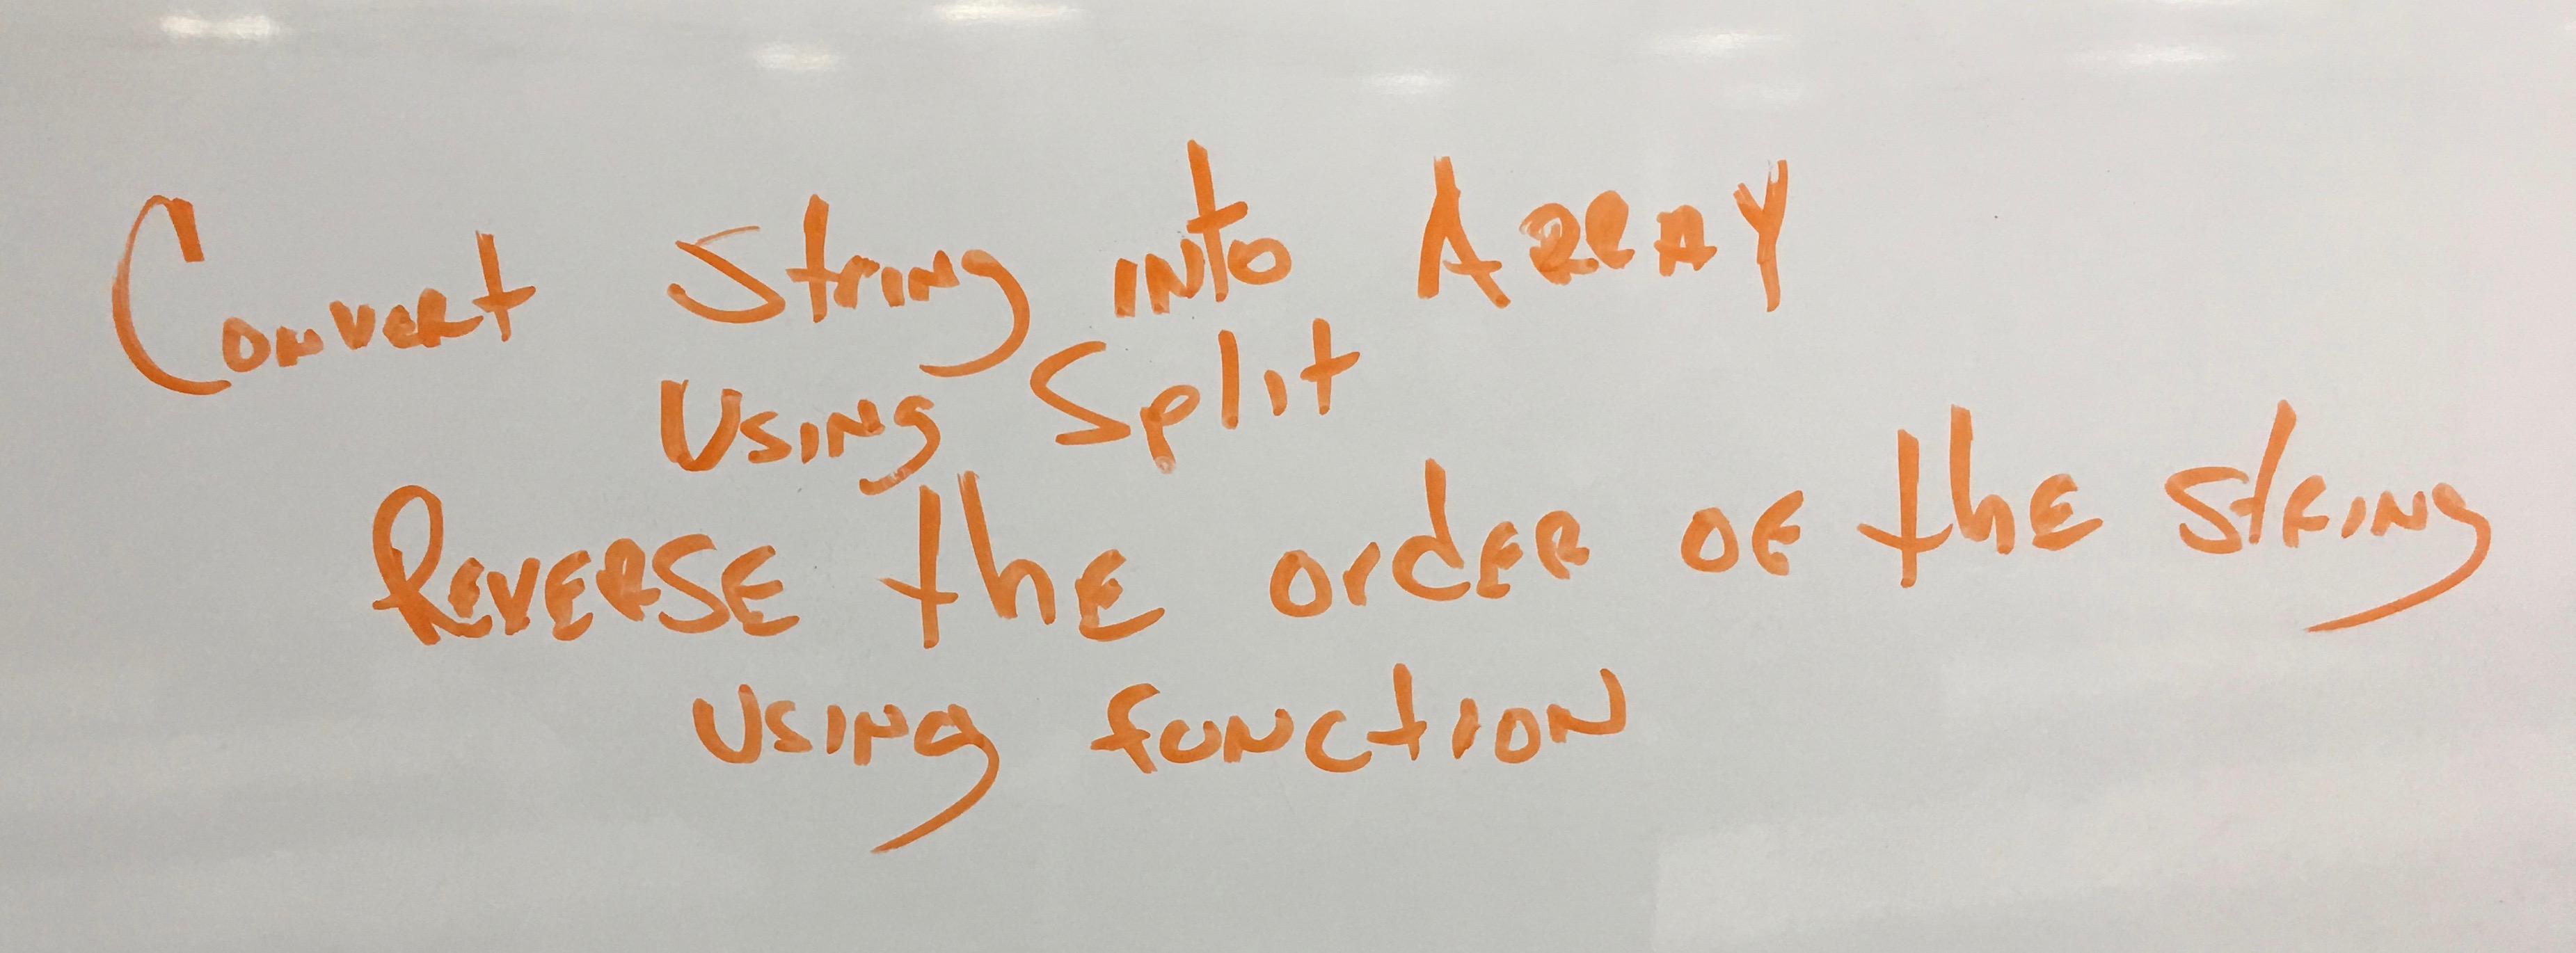 Convert String into Array
Using Split
Reverse the order of the string
using function